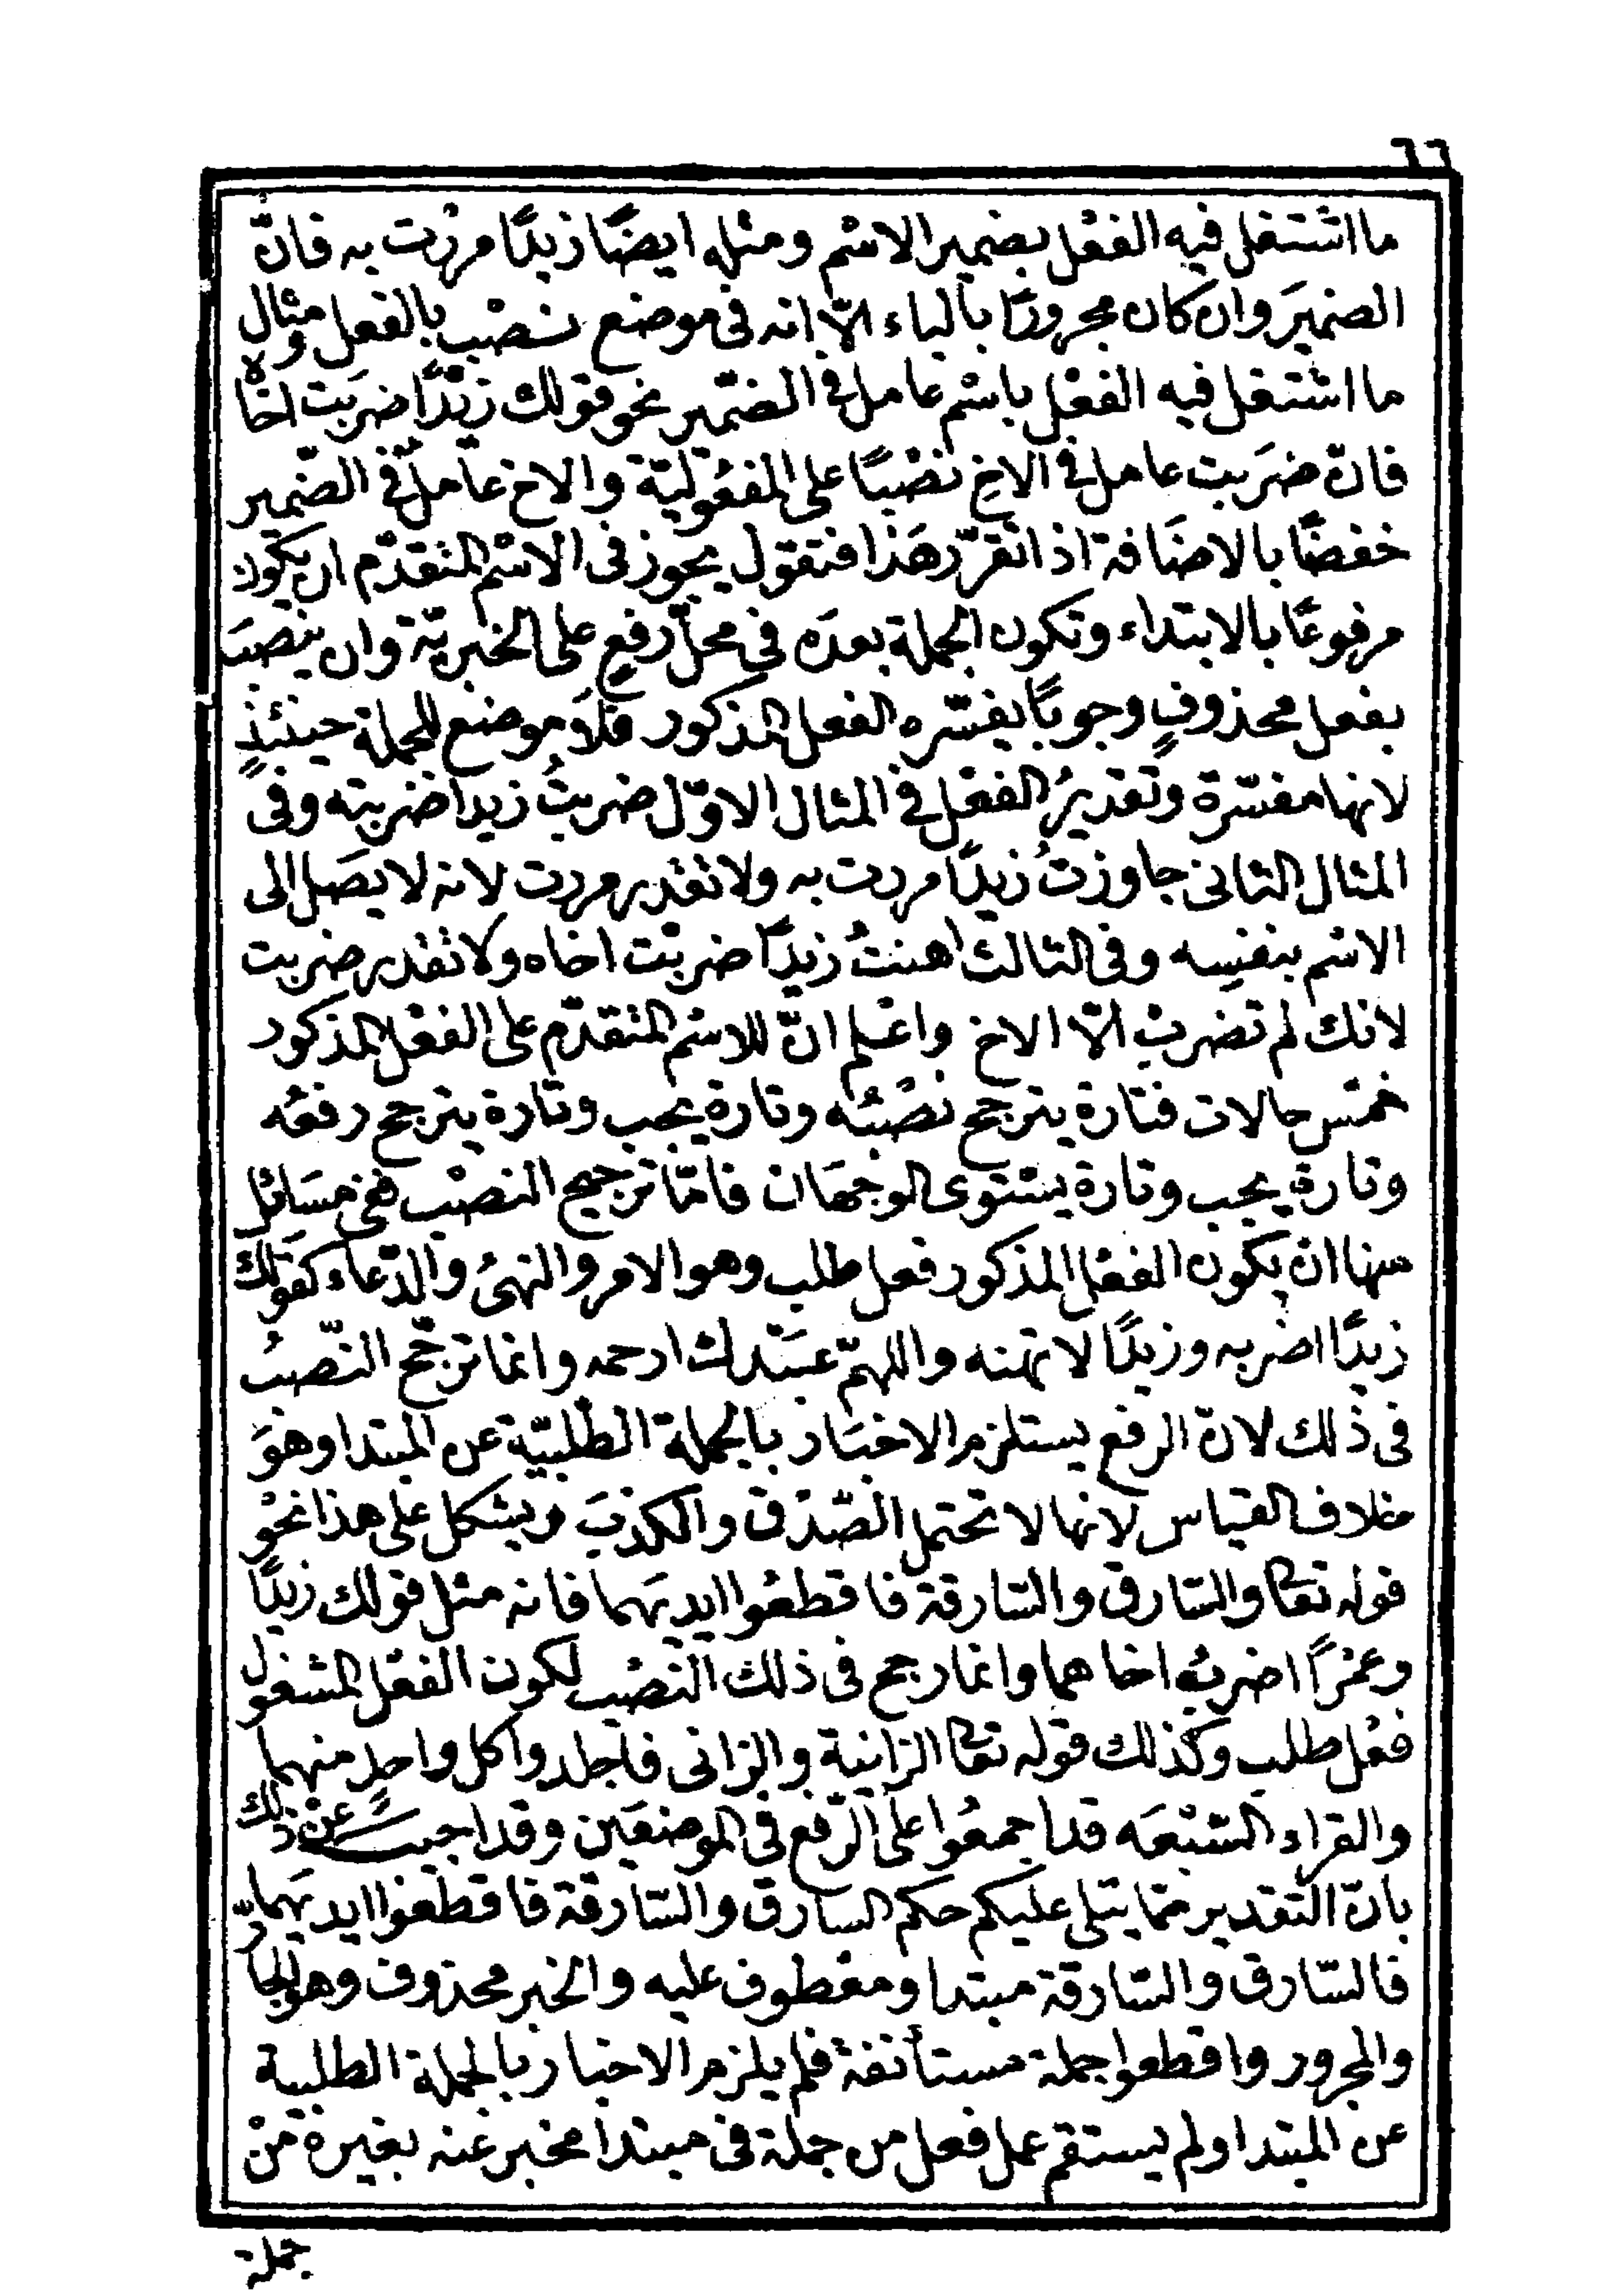 ٦٦
ما اشتغل فيه الفعْل بضمير الاسْم ومثله ايضًا زيدًا مررْت به فانّ
الضميَر وان كان مجرورًا بالباء الّا انه فى موضع نصْب بالفعل ومثال
ما اشتغل فيه الفعْل باسْم عامل فى الضّمير نحو قولك زيْدًا ضرَبت اخاه
فانّ ضرَبت عامل فى الاخِ نصْبًا على المفعُوليّة والاخ عَاملٌ فى الضّمير
خفضًا بالاضَافة اذا تقرّر هَذا فنقول يجوز فى الاسْم المتقدّم ان يكون
مرفوعًا بالابتداء وتكون الجملة بعدَه فى محلّ رفعٍ على الخبريّة وان ينصبَ
بفعل محذوفٍ وجوبًا يفسّره الفعل المذكور فلَا موضع للجملة حينئذٍ
لانها مفسّرة وتقديرُ الفعْل فى المثال الاوّل ضربتُ زيدا ضربته وفى
المثال الثانى جاوزتُ زيدًا مررت به ولا تقدر مررت لانه لا يصَل الى
الاسْم بنفسِه وفى الثالث اهنتُ زيدًا ضربْت اخاه ولا تقدر ضربت
لانك لم تضربْ الّا الاخ واعْلم انّ للاسْم المتقدّم على الفعْل المذكور
خمْس حالات فتارة يترجح نصْبُه وتارة يجب وتارة يترجح رفعُه
وتارة يجب وتارة يسْتوى الوجهَان فامّا ترجيح النصْب ففى مسَائل
منها انْ يكون الفعْل المذكور فعل طلب وهو الامر والنهىُ والدّعاء كقولك
زيدًا اضربه وزيدًا لا تهنه واللهمّ عبْدك ارحمه وانما ترجّح النّصبُ
فى ذلك لانّ الرفع يستلزم الاخبَار بالجملة الطّلبيّة عن المبتدا وهوَ
خلاف القياس لانها لا تحتمل الصّدْق والكذبَ ويشكل على هذا نحْو
قوله تعا والسّارق والسّارقة فاقطعُوا ايديَهما فانه مثل قولك زيدًا
وعمْرًا اضربْ اخاهما وانما رجح فى ذلك النصْب لكون الفعْل المشغول
فعْل طلب وكذلك قوله تعا الزانية والزانى فاجلدوا كل واحدٍ منهما
والقراء السّبْعَه قد اجمعُوا على الرّفع فى الموضعَين وقد اجيب عنْ ذلك
بانّ التّقدير ممّا يتلى عليكم حكم السارق والسّارقة فاقطعوا ايديَهما
فالسّارق والسّارقة مبتدا ومعْطوف عليه والخبر محذوف وهو الجارّ
والمجرور واقطعوا جملة مستأنفة فلم يلزم الاخبار بالجملة الطلبية
عن المبتدا ولم يستقم عمل فعل من جملة فى مبتدا مخبر عنه بغيره منْ
جملة